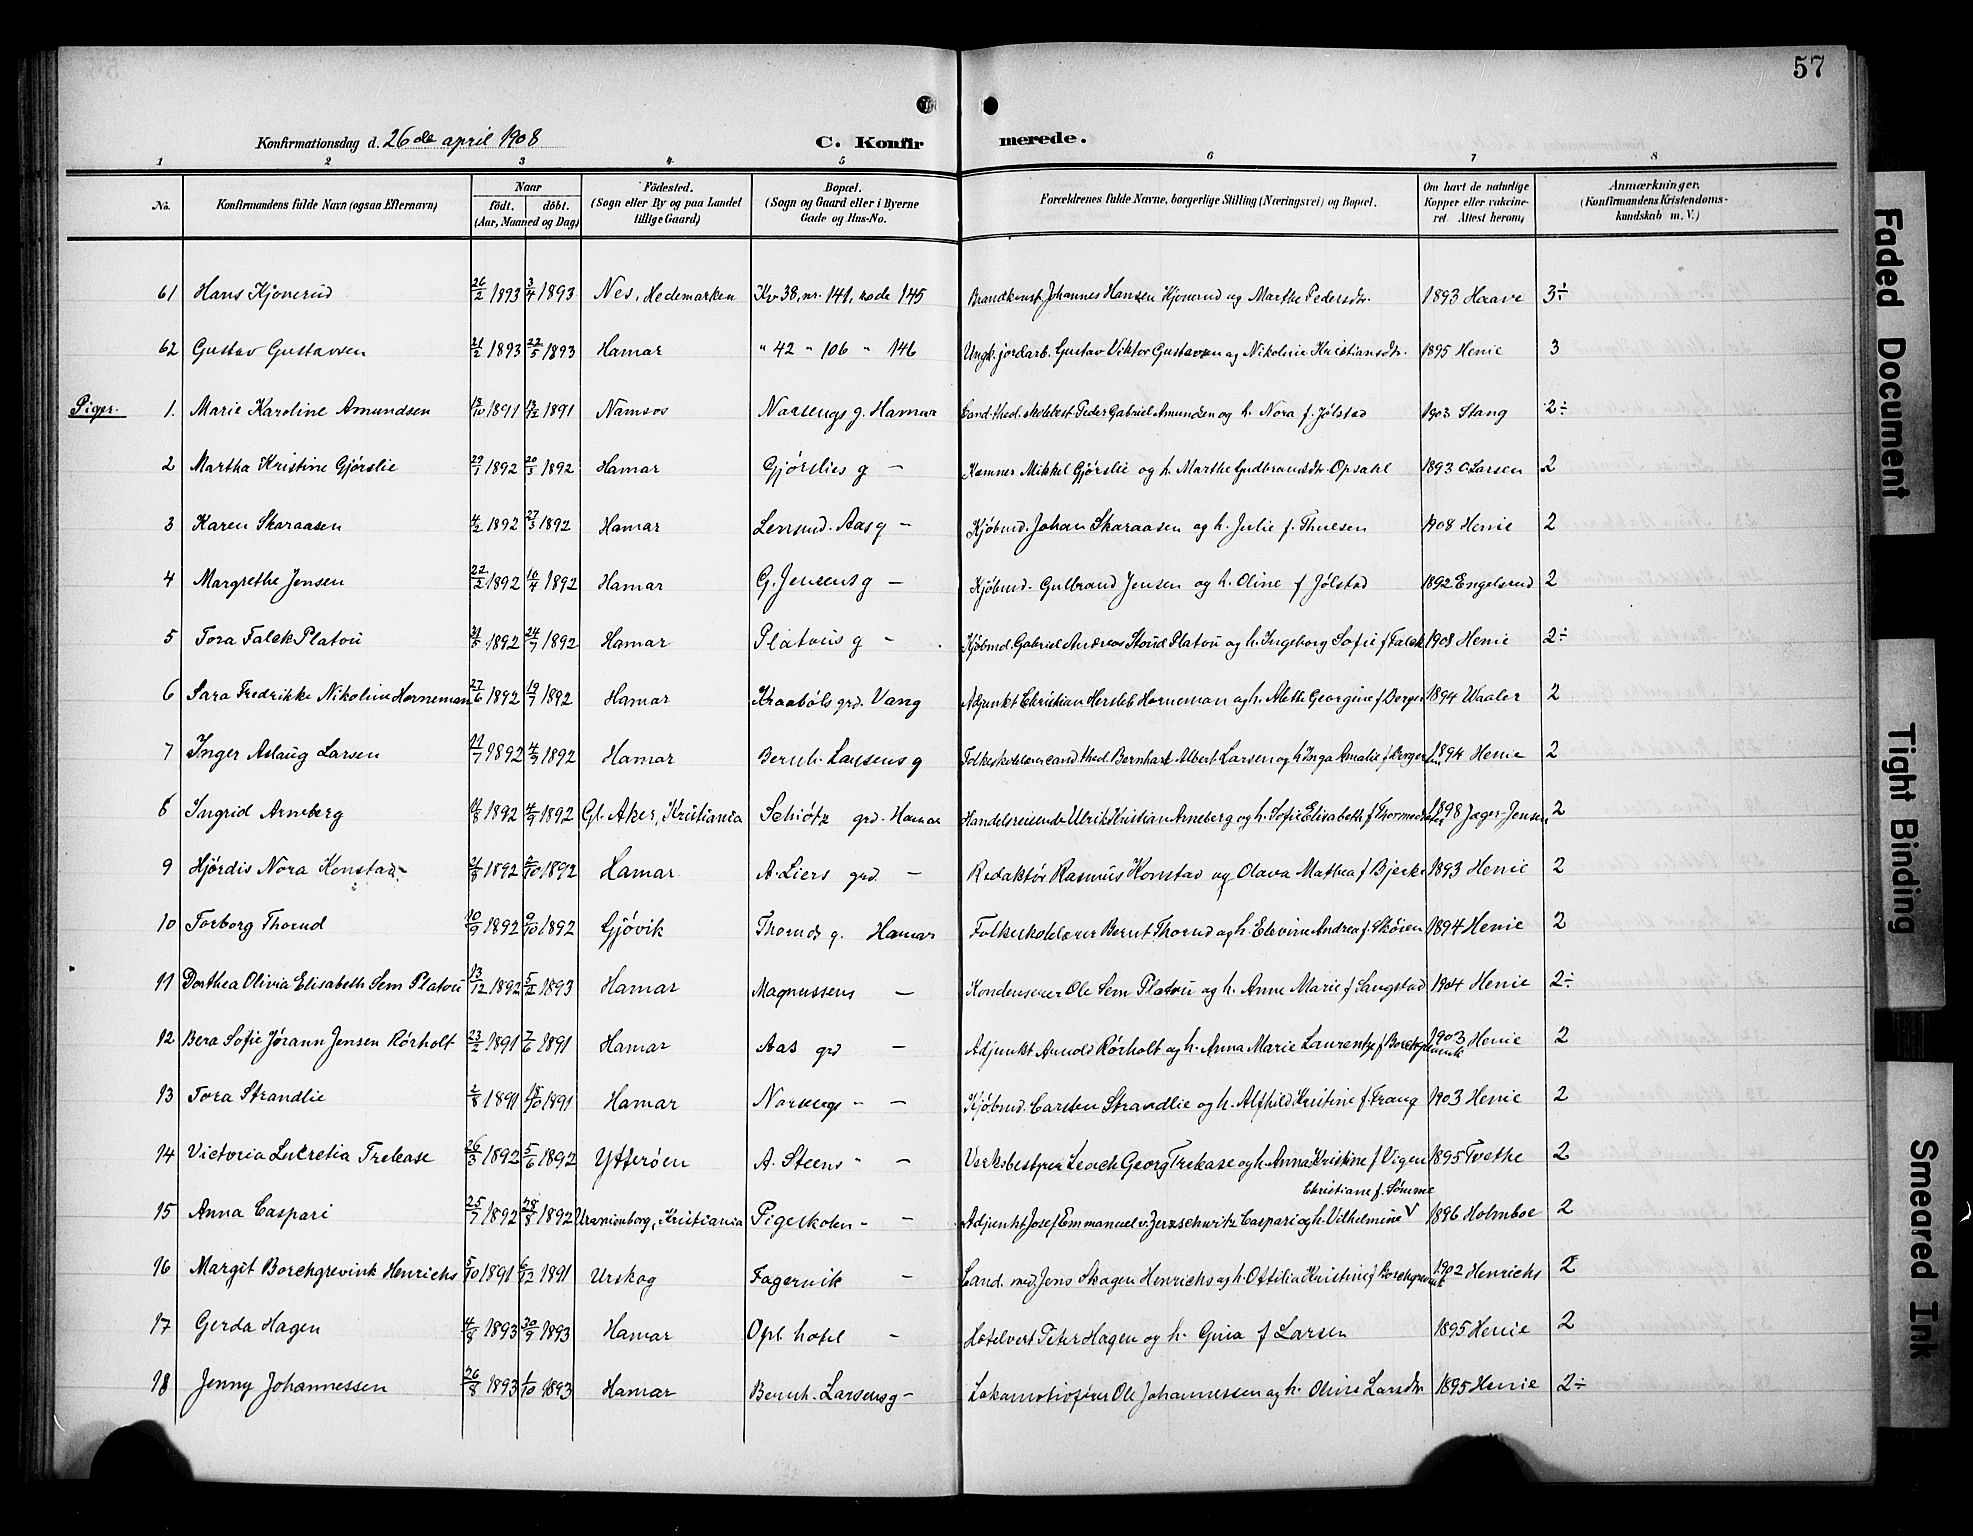 57
Konfirmationsdag d. 26de april 1908 C. Konfirmerede.
1 2 3 4 5 6 7 8
No. Konfirmandens fulde Navn (ogsaa Efternavn) Naar født. døbt. (Aar, Maaned og Dag) Fødested. (Sogn eller By og paa Landet tillige Gaard) Bopæl. (Sogn og Gaard eller i Byerne Gade og Hus-No. Forældrenes fulde Navne, borgerlige Stilling (Næringsvei) og Bopæl. Om havt de naturlige Kopper eller vaccineret. Attest herom. Anmærkninger. (Konfirmandens Kristendomskundskab m. V.)
61 Hans Kjonerud 26/2 1893 3/4 1893 Nes, Hedemarken Kv 38, nr. 141, rode 145 Brandkonst. Johannes Hansen Kjonerud og Marthe Pedersdr. 1893 Haave 3÷
62 Gustav Gustavsen 21/2 1893 22/5 1893 Hamar " 42 " 106 " 146 Ungk. jordarb. Gustav Viktor Gustavsen og Nikoline Kristiansdr. 1895 Henie 3
Piger. 1. Marie Karoline Amundsen 13/10 1891 13/12 1891 Namsos Narsengs g. Hamar Cand. theol. skolebest. Peder Gabriel Amundsen og h. Nora f. Jølstad 1903 Stang 2÷
2 Martha Kristine Gjørslie 29/1 1892 20/3 1892 Hamar Gjørslies g — Kæmner Mikkel Gjørslie og h. Marthe Gudbrandsdr. Opsahl 1893 O. Larsen 2
3 Karen Skaraasen 4/2 1892 27/3 1892 Hamar Lensmd. Aas g — Kjøbmd. Johan Skaraasen og h. Julie f. Thuesen 1908 Henie 2
4 Margrethe Jensen 22/2 1892 16/4 1892 Hamar G. Jensens g — Kjøbmd. Gulbrand Jensen og h. Oline f Jølstad 1892 Engelsrud 2
5 Tora Falck Platou 31/5 1892 24/7 1892 Hamar Platous g — Kjøbmd. Gabriel Andreas Stoud Platou og h. Ingeborg Sofie f Falck 1908 Henie 2÷
6 Sara Fredrikke Nikoline Horneman 27/6 1892 19/7 1892 Hamar Kraabøls grd. Vang Adjunkt Christian Hersleb Horneman og h. Alette Georgine f Berger 1894 Waaler 2
7 Inger Aslaug Larsen 11/7 1892 4/9 1892 Hamar Bernh. Larsens g Folkeskolelærer cand theol. Bernhard Albert Larsen og h Inga Amalie f Bergersen 1894 Henie 2
8 Ingrid Arneberg 11/8 1892 4/9 1892 Gl. Aker, Kristiania Schiøtz grd. Hamar Handelsreisende Ulrik Kristian Arneberg og h. Sofie Elisabeth f Thormodsæter 1898 Jæger-Jensen 2
9 Hjørdis Nora Konstad 21/8 1892 2/10 1892 Hamar A. Liers grd. — Redaktør Rasmus Konstad og Olava Mathea f Bjerke 1893 Henie 2
10 Torborg Thorud 10/9 1892 9/10 1892 Gjøvik Thoruds g. Hamar Folkeskolelærer Bernt Thorud og h. Elevine Andrea f. Skøien 1894 Henie 2
11 Dorthea Olivia Elisabeth Sem Platou 13/12 1892 5/2 1893 Hamar Magnussens — Kondenserer Ole Sem Platou og h. Anne Marie f Sangstad 1904 Henie 2÷
12 Bera Sofie Jørann Jensen Rørholt 23/2 1891 7/6 1891 Hamar Aas grd — Adjunkt Arnold Rørholt og h. Anna Marie Laurentze f Borchgrevink 1903 Henie 2
13 Tora Strandlie 2/8 1891 18/10 1891 Hamar Narsengs " — Kjøbmd. Carsten Strandlie og h. Alfhild Kristine f. Frang 1903 Henie 2
14 Victoria Lucretia Trelease 26/3 1892 5/6 1892 Ytterøen A. Steens " — Verksbestyrer Leach Georg Trelease og h. Anna Kristine f Vigen 1895 Tvethe 2
Christiane f. Sømme
15 Anna Caspari 25/7 1892 28/8 1892 Uranienborg, Kristiania Pigeskolen — — Adjunkt Josef Emmanuel v. Zerzschwitz Caspari og h. Vilhelmine V 1896 Holmboe 2
16 Margit Borchgrevink Henrichs 5/10 1891 6/12 1891 Urskog Fagervik — Cand. med. Jens Skogen Henrichs og h. Ottilia Kristine f Borchgrevink 1902 Henrichs 2
17 Gerda Hagen 4/8 1893 30/9 1893 Hamar Opl. hotel — Hotelvert Peter Hagen og h. Gina f Larsen 1895 Henie 2
18 Jenny Johannessen 26/8 1893 1/10 1893 Hamar Bernh. Larsens g — Lokomotivfører Ole Johannessen og h. Oline Larsdr. 1895 Henie 2÷
Faded Document
Tight Binding
Smeared Ink